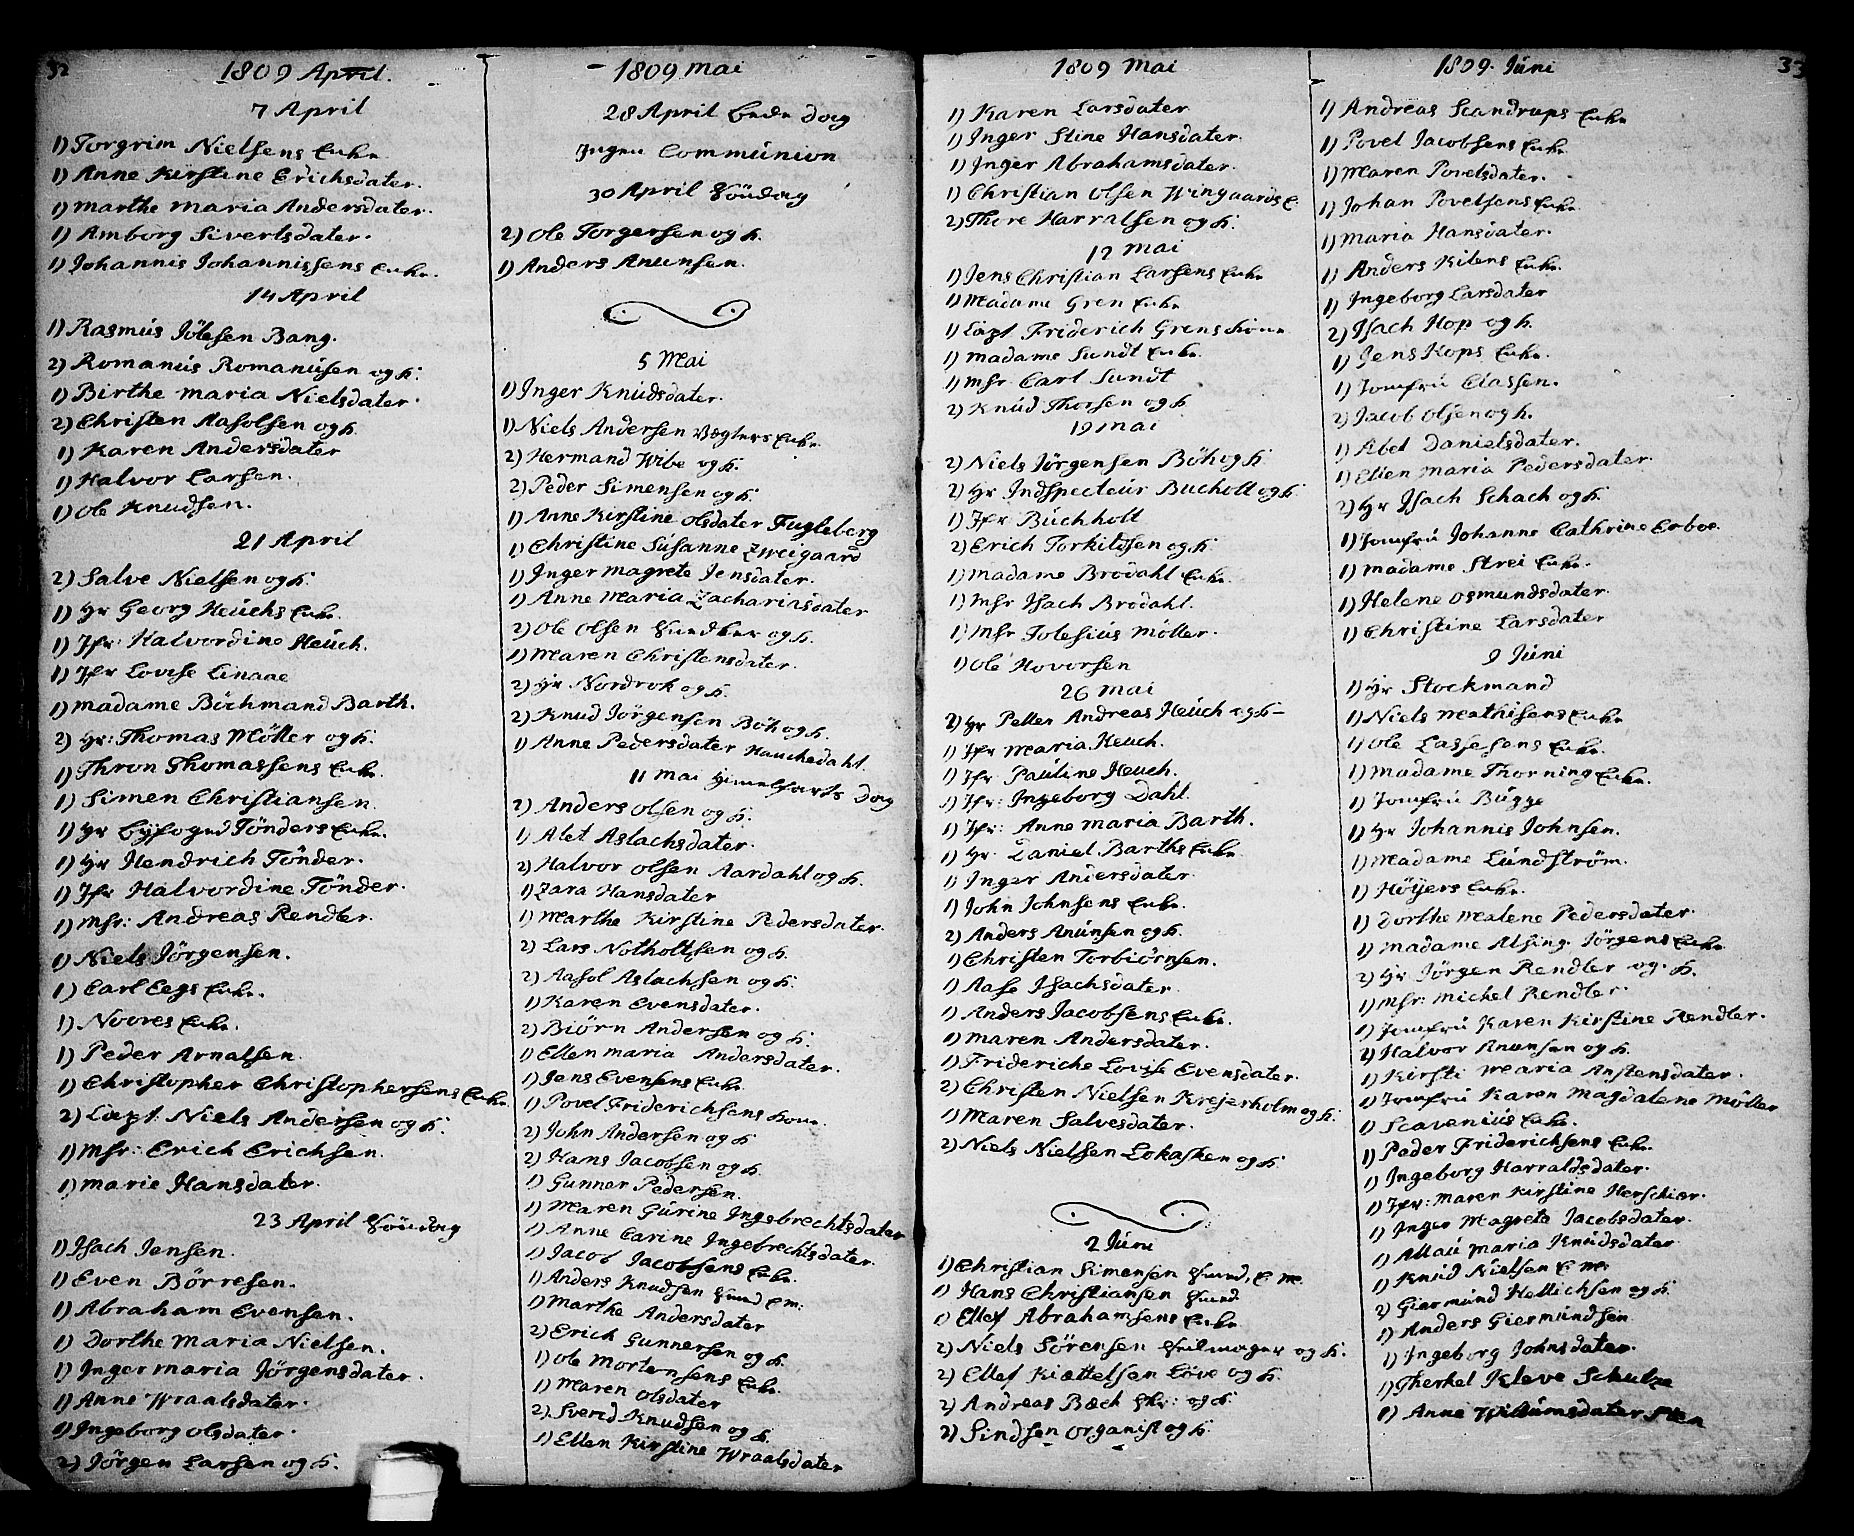 32
1809 April.
7 April
1) Torgrim Nielsens Enke
1) Anne Kirstine Erichsdater.
1) Marthe Maria Andersdater.
1) Amborg Sivertsdater.
1) Johannis Johannissens Enke.
14 April
1) Rasmus Jölesen Bang.
2) Romanus Romanusen og K.
1) Birthe Maria Nielsdater.
2) Christen Aasolsen og K.
1) Karen Andersdater
1) Halvor Larsen.
1) Ole Knudsen.
21 April
2) Salve Nielsen og K.
1) Hr Georg Heuchs Enke.
1) Jfr: Halvordine Heuch.
1) Jfr Lovise Linaae
1) Madame Böchmand Barth.
2) Hr: Thomas Möller og K.
1) Thron Thomassens Enke.
1) Simen Christiansen.
1) Hr Byfoged Tönders Enke.
1) Hr Hendrich Tönder.
1) Jfr Halvordine Tönder.
1) Msr: Andreas Rendler.
1) Niels Jörgensen.
1) Carl Eegs Enke.
1) Noores Enke.
1) Peder Arnalsen.
1) Christopher Christophersens Enke.
2) Capt: Niels Andersen og K.
1) Msr: Erich Erichsen.
1) Marie Hansdater.
23 April Söndag
1) Isach Jensen.
1) Even Börresen.
1) Abraham Evensen.
1) Dorthe Maria Nielsen.
1) Inger Maria Jörgensdater.
1) Anne Wraalsdater.
1) Ingeborg Olsdater.
2) Jörgen Larsen og K.
1809 Mai
28 April Bede Dag
Ingen Communion
30 April Söndag
2) Ole Torgersen og K.
1) Anders Anunsen.
5 Mai
1) Inger Knudsdater.
1) Niels Andersen Vegters Enke.
2) Hermand Wibe og K.
2) Peder Simensen og K.
1) Anne Kirstine Olsdater Fugleberg
1) Christine Susanne Zweigaard
1) Inger Magrete Jensdater.
1) Anne Maria Zachariasdater
2) Ole Olsen og K.
1) Maren Christensdater.
2) Hr Nordrok og K.
2) Knud Jörgensen Böh og K.
1) Anne Pedersdater Hauchedahl.
11 Mai Himmelfarts Dag
2) Anders Olsen og K.
1) Alet Aslachsdater.
2) Halvor Olsen Aardahl og K.
1) Zara Hansdater
1) Marthe Kirstine Pedersdater.
2) Lars Notholtsen og K.
2) Aasol Aslachsen og K.
1) Karen Evensdater.
2) Biörn Andersen og K.
1) Ellen Maria Andersdater.
1) Jens Evensens Enke.
1) Povel Friderichsens Kone.
2) John Andersen og K
2) Hans Jacobsen og K
1) Gunner Pedersen.
1) Maren Gurine Ingebrechtsdater
1) Anne Carine Ingebrechtsdater.
1) Jacob Jacobsens Enke.
1) Anders Knudsen
1) Marthe Andersdater
2) Erich Gunnersen og K.
1) Ole Mortensens Enke.
1) Maren Olsdater
2) Sverid Knudsen og K.
1) Ellen Kirstine Wraalsdater
1809 Mai
1) Karen Larsdater
1) Inger Stine Hansdater.
1) Inger Abrahamsdater.
1) Christian Olsen Wingaards E.
2) Thore Harralsen og K.
12 Mai
1) Jens Christian Larsens Enke
1) Madame Gren Enke
1) Capt Friderich Grens Kone
1) Madame Sundt Enke.
1) Msr. Carl Sundt
2) Knud Thorsen og K
19 Mai
2) Niels Jörgensen Böh og K
2) Hr Indspecteur Bucholt og K
1) Jfr Buchholt
2) Erich Torkildsen og K
1) Madame Brodahl Enke.
1) Msr Isach Brodahl.
1) Msr Tolesius Möller.
1) Ole Hovorsen
26 Mai
2) Hr Petter Andreas Heuch og K
1) Jfr Maria Heuch.
1) Jfr Pauline Heuch.
1) Jfr: Ingeborg Dahl.
1) Jfr: Anne Maria Barth.
1) Hr. Daniel Barths Enke
1) Inger Andersdater.
1) John Johnsens Enke.
2) Anders Anunsen og K.
1) Christen Torbiörnsen.
1) Aase Isachsdater.
1) Anders Jacobsens Enke.
1) Maren Andersdater.
1) Frideriche Lovise Evensdater.
2) Christen Nielsen Krejerholm og K.
1) Maren Salvesdater.
2) Niels Nielsen Lokasken og K.
2 Juni
1) Christian Simensen
1) Hans Christiansen
1) Ellef Abrahamsens Enke
2) Niels Sörensen og K.
2) Ellef Kiættelsen Löve og K.
2) Andreas Bæch og K
2) Sindsen Organist og K.
1809. Juni
33
1) Andreas Scandrups Enke
1) Povel Jacobsens Enke.
1) Maren Povelsdater.
1) Johan Povelsens Enke.
1) Maria Hansdater.
1) Anders Kilens Enke.
1) Ingeborg Larsdater
2) Isach Hop og K.
1) Jens Hops Enke.
1) Jomfru Classen.
2) Jacob Olsen og K.
1) Abel Danielsdater.
1) Ellen Maria Pedersdater.
2) Hr Isach Schach og K.
1) Jomfru Johanne Cathrine Erboe.
1) Madame Strei Enke.
1) Helene Osmundsdater.
1) Christine Larsdater
9 Juni
1) Hr Stockmand
1) Niels Mathisens Enke
1) Ole Lassesens Enke.
1) Madame Thorning Enke.
1) Jomfru Bugge
1) Hr Johannis Johnsen.
1) Madame Lundström.
1) Höyers Enke.
1) Dorthe Malene Pedersdater.
1) Madame Alsing Jörgens Enke
2) Hr Jörgen Rendler og K.
1) Msr: Michel Rendler.
1) Jomfru Karen Kirstine Rendler.
2) Halvor Anunsen og K.
1) Kirsti Maria Anstensdater.
1) Jomfru Karen Magdalene Möller
1) Scavenius Enke.
1) Peder Friderichsens Enke.
1) Ingeborg Harraldsdater.
1) Jfr: Maren Kirstine Herschier.
1) Inger Magrete Jacobsdater.
1) Maria Knudsdater
1) Knud Nielsen E. M.
2) Giermund Hellichsen og K.
1) Anders Giermundsen
1) Ingeborg Johnsdater.
1) Therkel Kleve Schulze
1) Anne Willumsdater